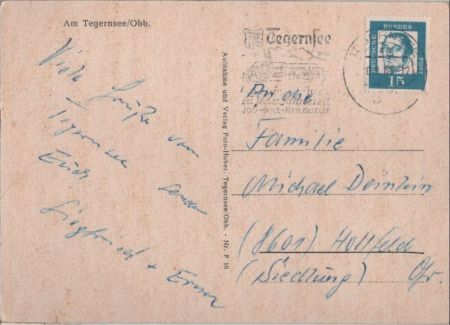 Am Tegernsee/Obb.
Viele Grüße vom
Tegernsee senden
Euch
Siegfried + Erna
Aufnahme und Verlag Foto-Huber, Tegernsee/Obb. - Nr. F 56
Tegernsee
zu jeder Jahreszeit
JOD-SOLE-HEILQUELLE
DEUTSCHE
BUNDES
POST
15
An die
Familie
Michael Deinlein
(8601) Hollfeld
(Siedlung) Ofr.